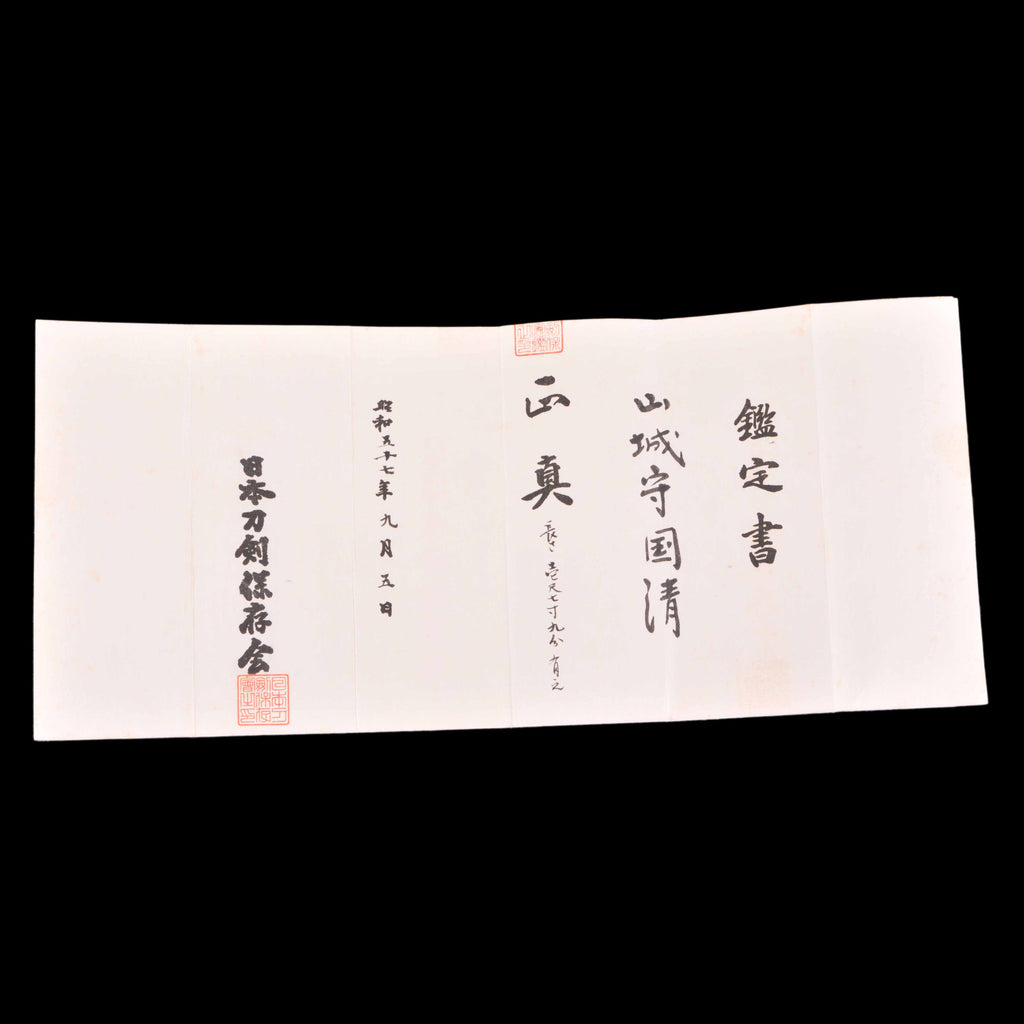 鑑定書
山城守国清
正真
長さ壱尺七寸九分有之
昭和五十七年九月五日
日本刀剣保存会